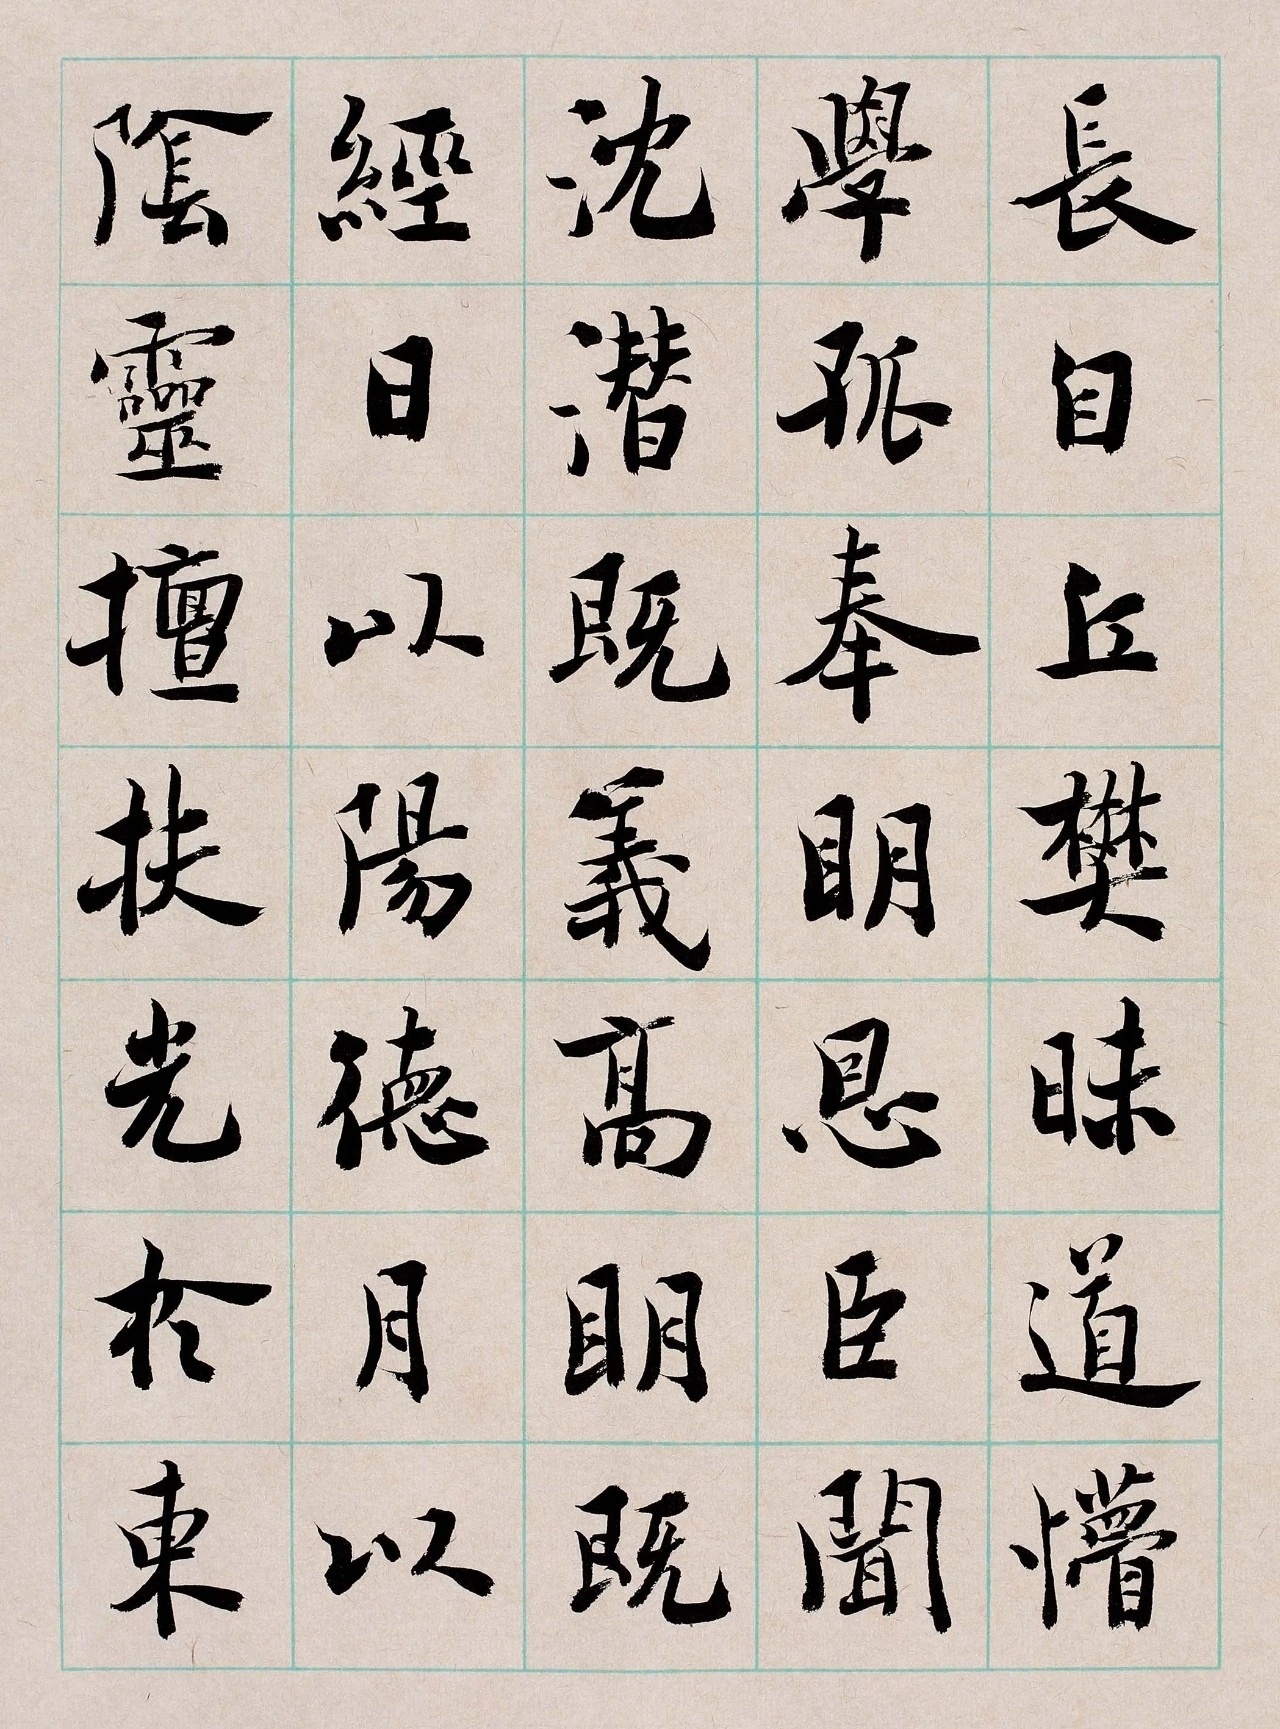 長自丘樊昧道懵
學孤奉明恩臣聞
沈潛既義高明既
經日以陽德月以
陰靈擅扶光於東